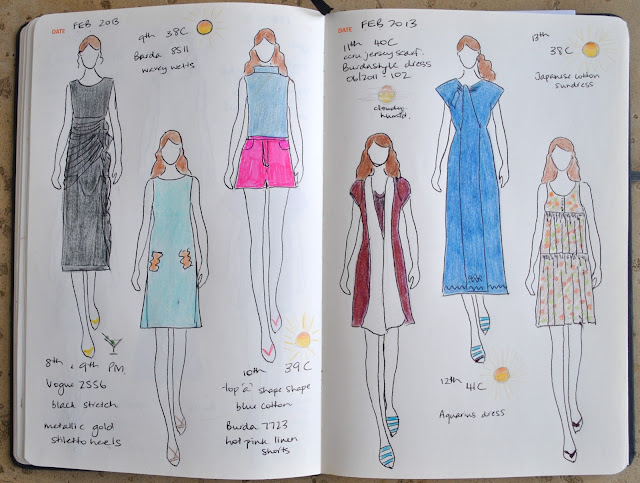 DATE FEB 2013
9th 38C
Burda 8511
wavey welts
8th + 9th PM.
Vogue 2556
black stretch
metallic gold
stiletto heels
10th 39C
"top 'a'" shape shape
blue cotton
Burda 7723
hot pink linen
shorts
DATE FEB 2013
11th 40C
ecru jersey scarf.
Burdastyle dress
06/2011 102
cloudy,
humid.
13th
38C
Japanese cotton
sundress
12th 41C
Aquarius dress